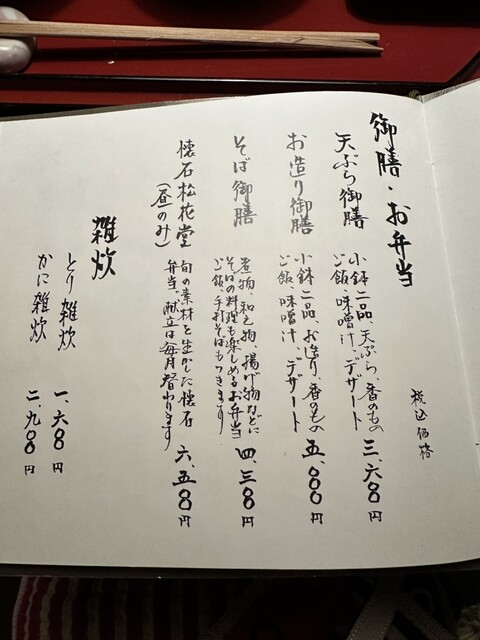 御膳・お弁当
税込価格
天ぷら御膳
小鉢二品、天ぷら、香のもの
ご飯、味噌汁、デザート
三、六〇〇円
お造り御膳
小鉢二品、お造り、香のもの
ご飯、味噌汁、デザート
五、〇〇〇円
そば御膳
煮物、和え物、揚げ物などに
そばの料理も楽しめるお弁当
ご飯、手打そばもつきます
四、三〇〇円
懐石松花堂
(昼のみ)
旬の素材を生かした懐石
弁当。献立は毎月替わります
六、五〇〇円
雑炊
とり雑炊 一、六〇〇円
かに雑炊 二、九〇〇円